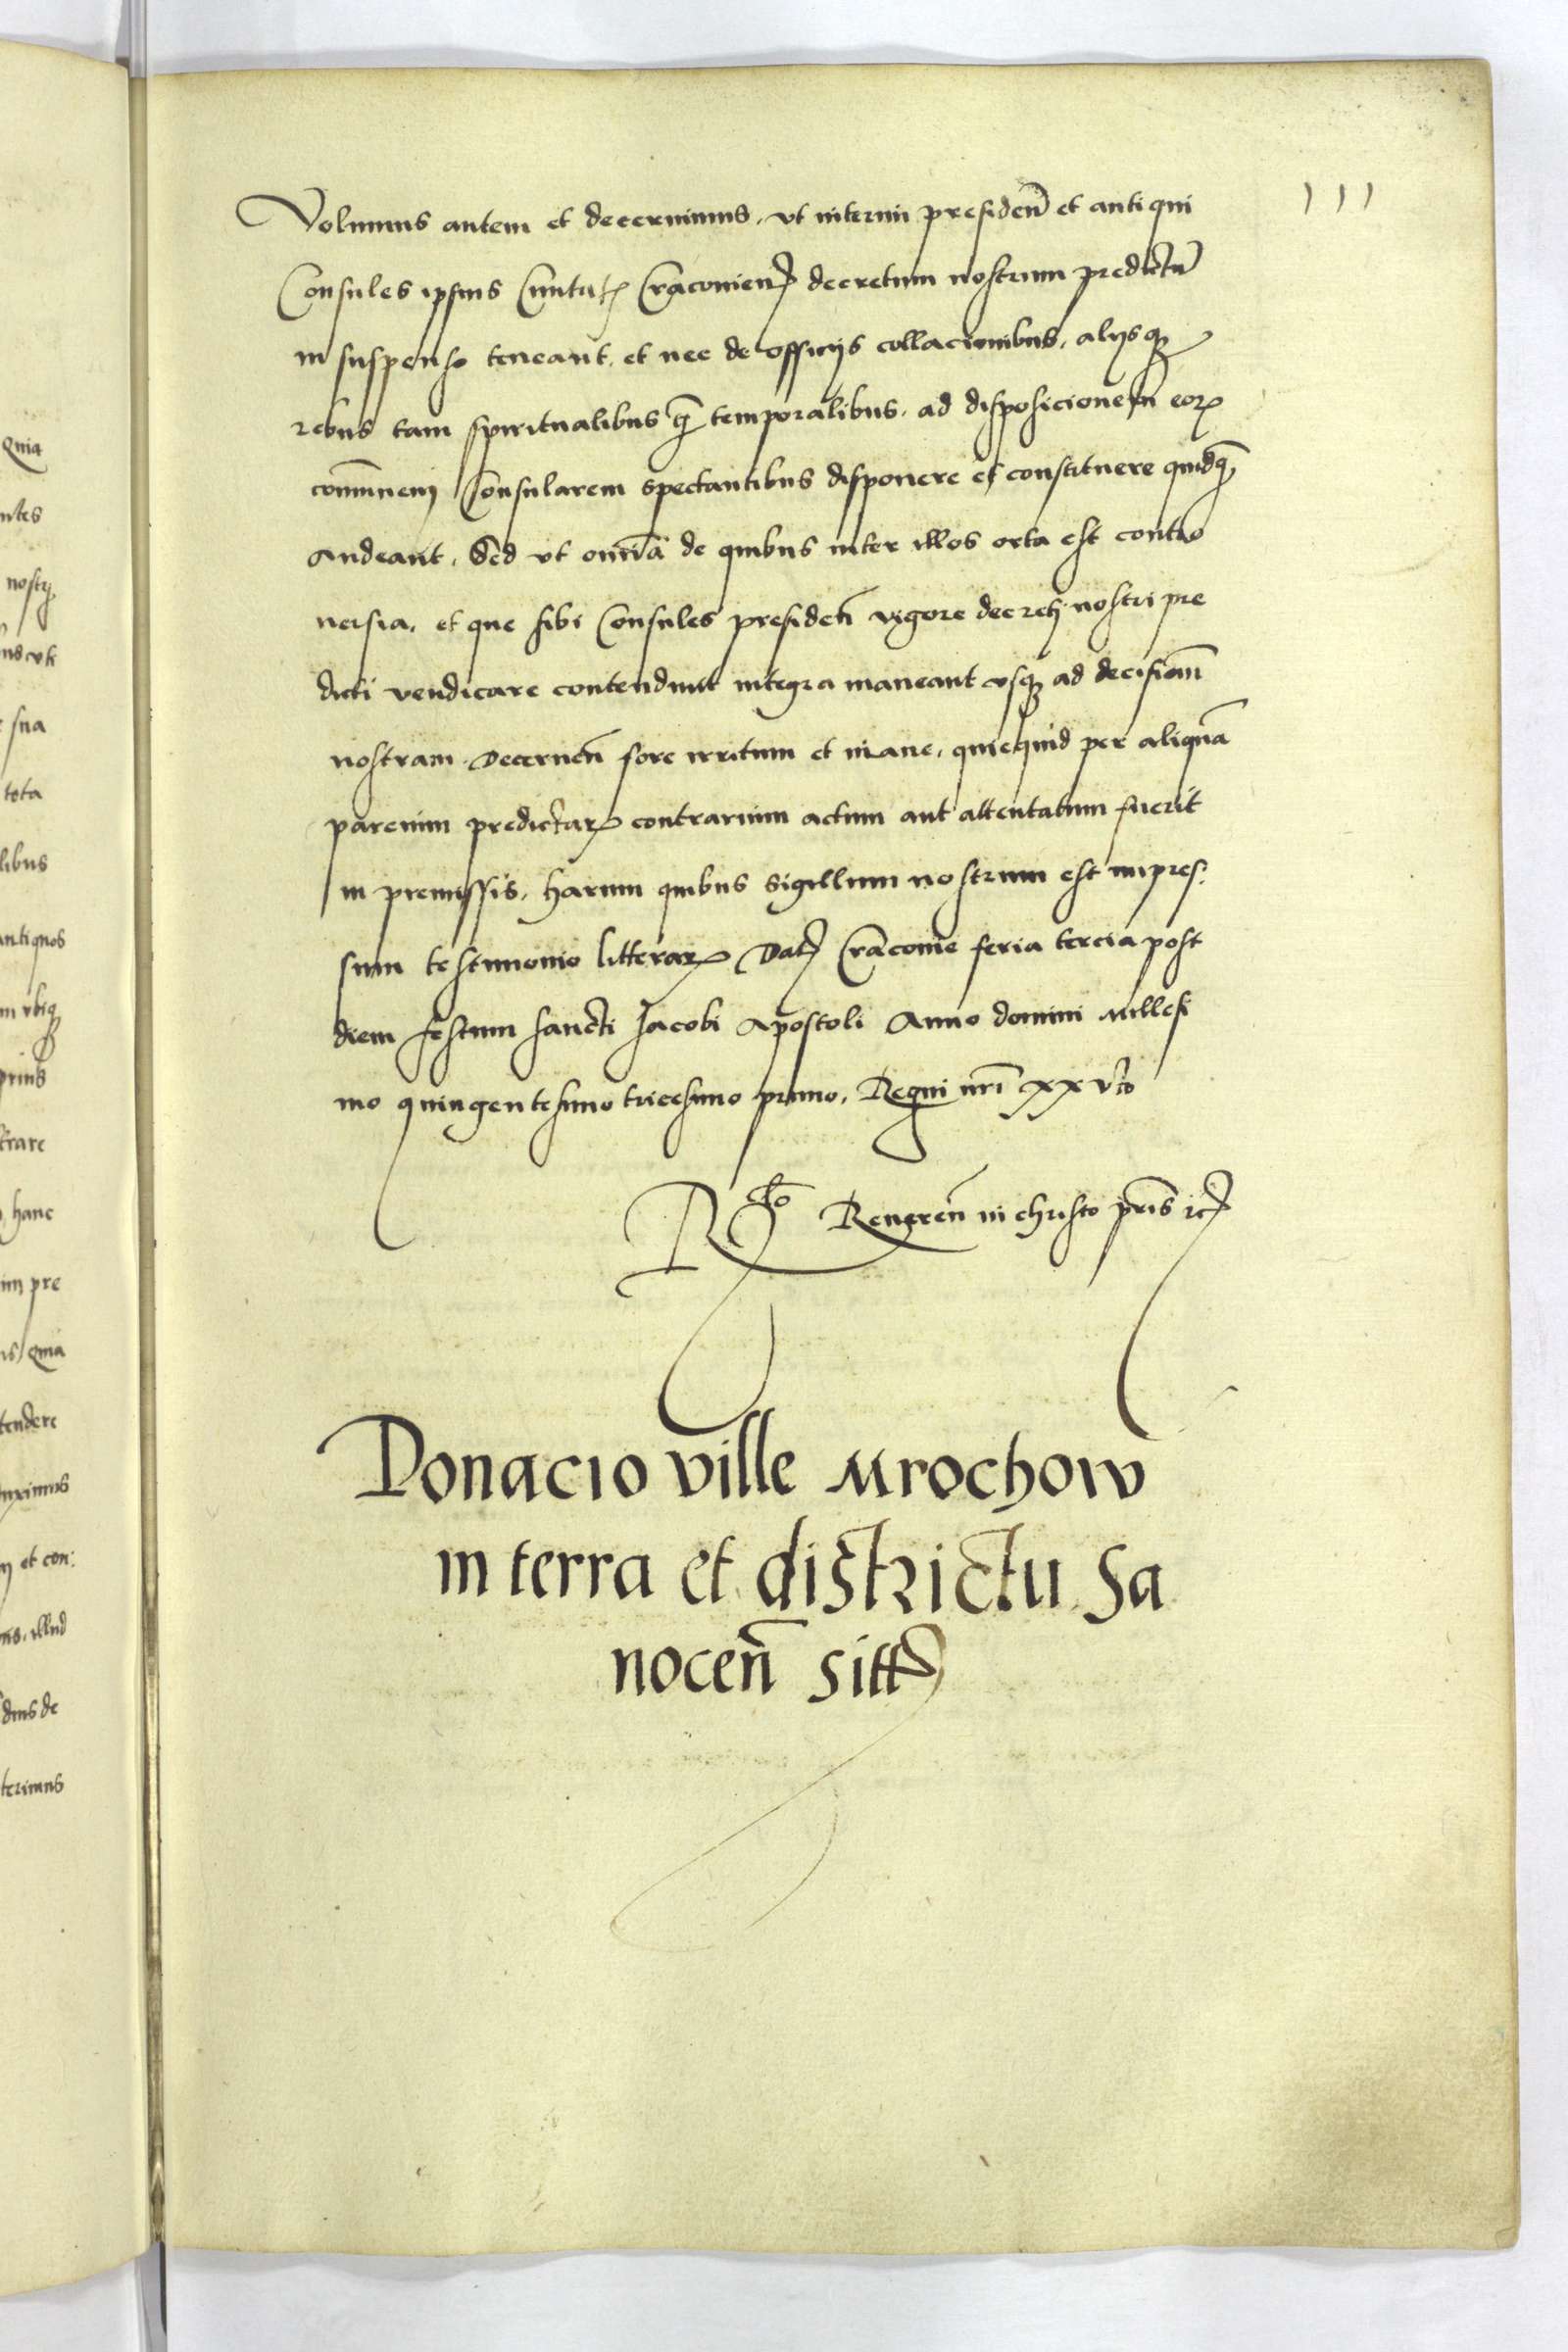 111
Volumus autem et decernimus, vt interim presiden̄ et antiqui
Consules ipsius Ciuitatꝭ Cracouien̄ decretum nostrum predictū
in suspenso teneant, et nec de officijs collacionibus, alijsqꝫ
rebus tam spiritualibus qꝫ temporalibus, ad disposicionem eorꝝ
com̄unem Consularem spectantibus disponere et constituere quidqꝫ
audeant, Sed vt om̄ia de quibus inter illos orta est contro
uersia, et que sibi Consules presiden̄ vigore decreti nostri pre
dicti vendicare contendunt integra maneant vsqꝫ ad decisiom̄
nostram. Decernen̄ fore irritum et inane, quicquid per aliquā
parcium predictarꝝ contrarium actum aut attentatum fuerit
in premissis, harum quibus sigillum nostrum est impres:
sum testimonio litterarꝝ Datꝭ Cracouie feria tercia post
diem festum sancti Jacobi Apostoli Anno domini Millesi
mo quingentesimo tricesimo primo, Regni nr̄i xxvto
Rcio Reueren̄ in christo pr̄is ꝛcꝭ
Donacio ville Mrochow
in terra et districtu Sa
nocen̄ sittꝭ
Quia
ntes
sua
tota
libus
antiquos
prius
trare
hanc
im pre
is, Quia
tendere
et con:
ns, illud
dius de
terimus